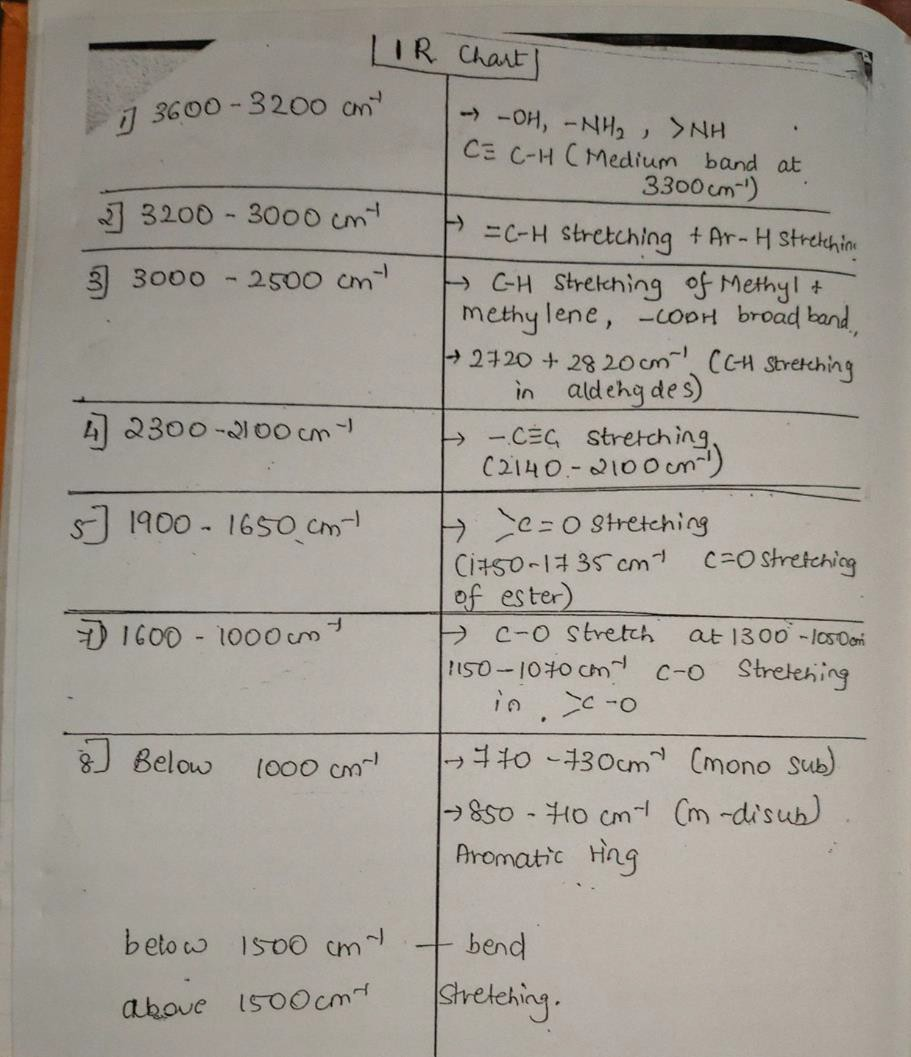 IR Chart
1] 3600 - 3200 cm⁻¹
→ -OH, -NH₂, >NH
C≡ C-H (Medium band at
3300cm⁻¹)
2] 3200 - 3000 cm⁻¹
→ =C-H stretching + Ar-H Stretchin
3] 3000 - 2500 cm⁻¹
→ C-H Stretching of Methyl +
methylene, -COOH broad band,
→ 2720 + 2820cm⁻¹ (C-H stretching
in aldehydes)
4] 2300-2100cm⁻¹
→ -C≡C stretching,
(2140-2100cm⁻¹)
5] 1900 - 1650 cm⁻¹
→ >C=O Stretching
(1750-1735cm⁻¹ C=O stretching
of ester)
7) 1600 - 1000cm⁻¹
→ C-O Stretch at 1300-1050cm
1150-1070cm⁻¹ C-O Stretching
in >C-O
8] Below 1000 cm⁻¹
→ 770-730cm⁻¹ (mono sub)
→ 850-710 cm⁻¹ (m-disub)
Aromatic ring
below 1500 cm⁻¹ — bend
above 1500cm⁻¹ Stretching.